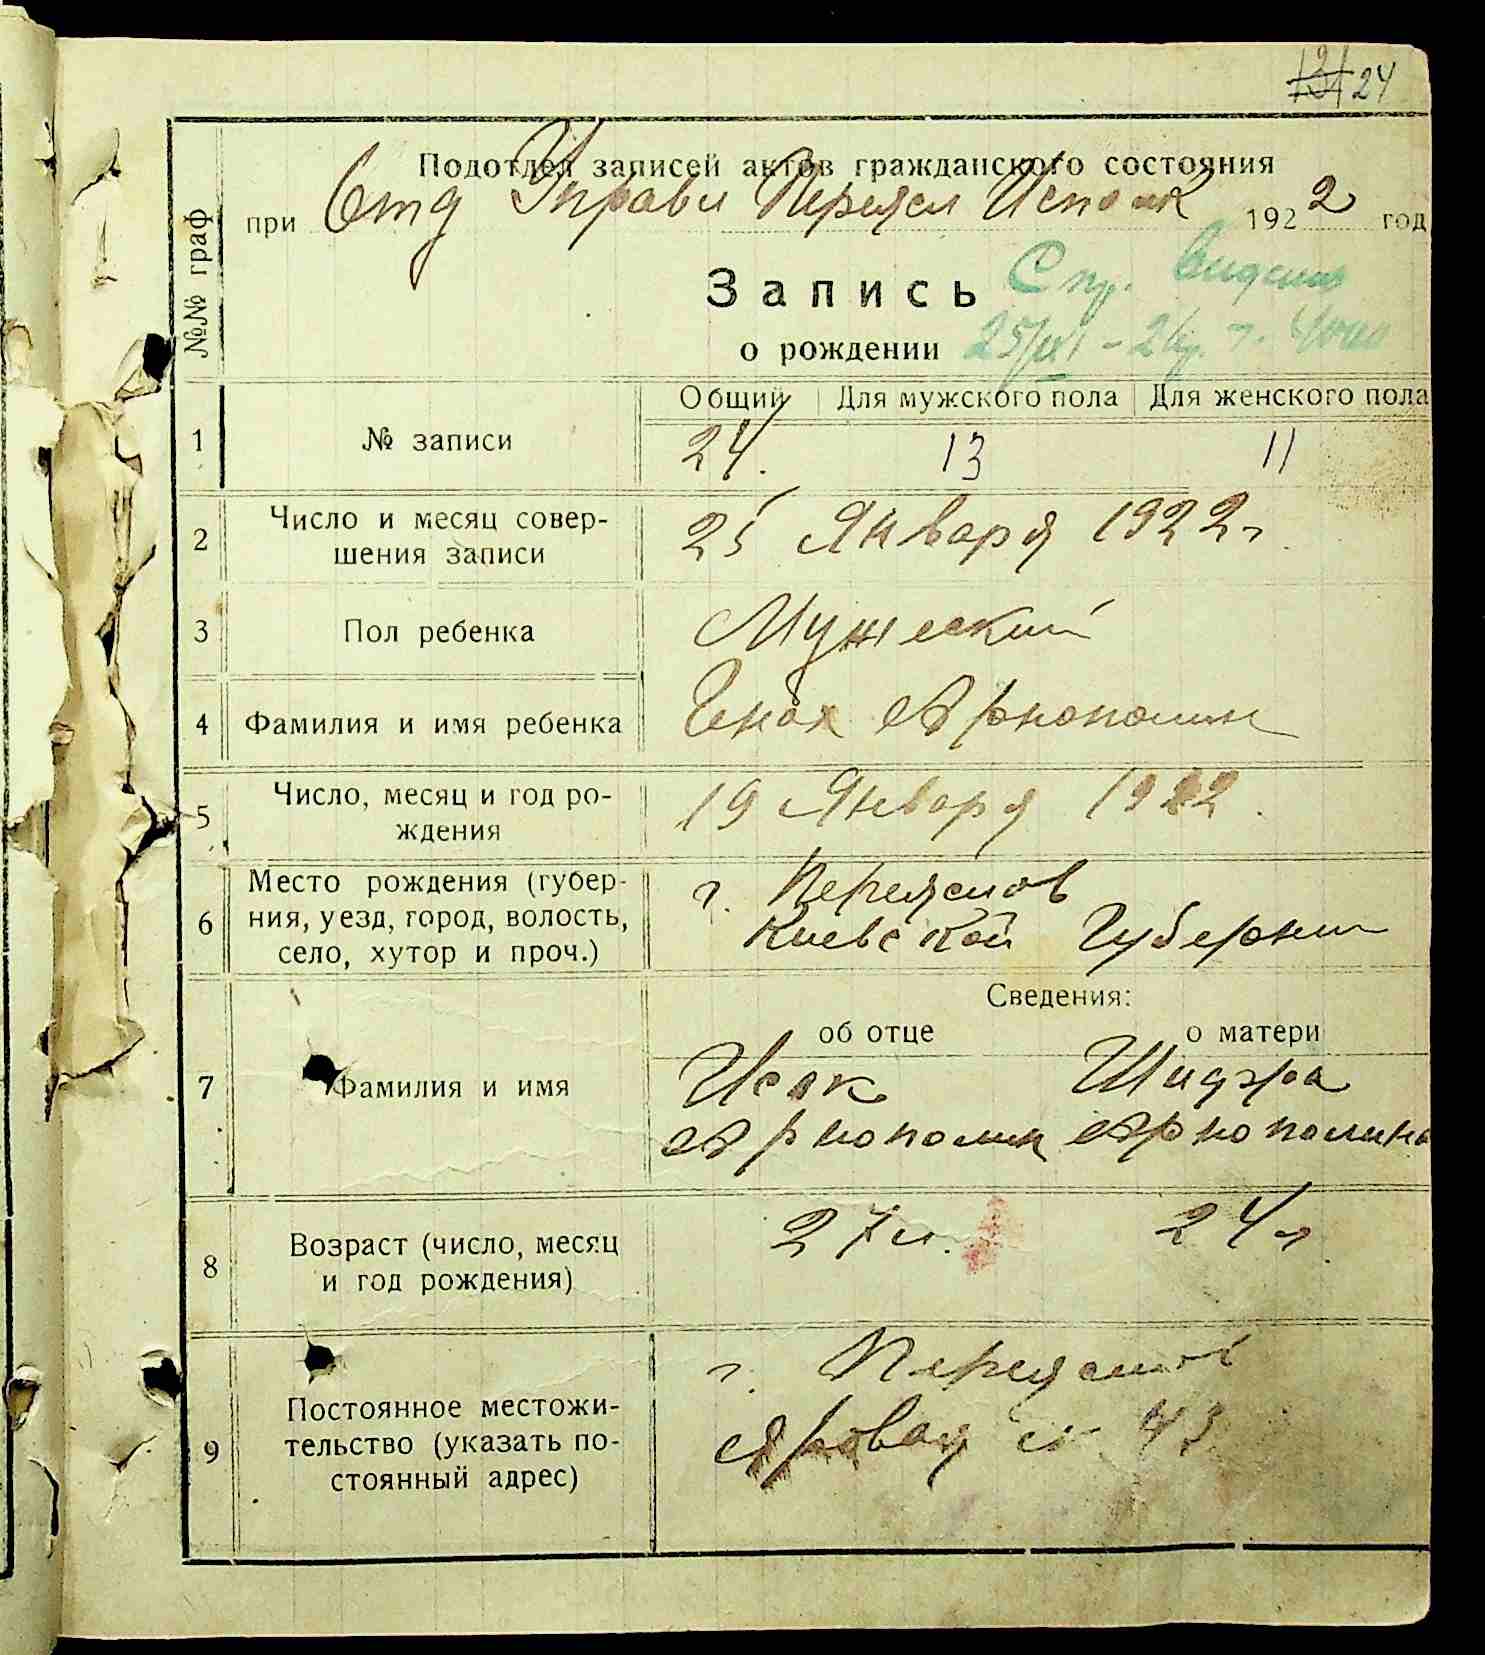 24
Подотдел записей актов гражданского состояния
при Отд Управл Переясл Исполк 1922 год
№№ граф
Запись
о рождении
Общий Для мужского пола Для женского пола
1 № записи 24. 13 11
2 Число и месяц совер-
шения записи
25 Января 1922 г.
3 Пол ребенка Мужеский
4 Фамилия и имя ребенка Енох Арнополин
5 Число, месяц и год ро-
ждения
19 Января 1922.
6 Место рождения (губер-
ния, уезд, город, волость,
село, хутор и проч.)
г. Переяслов
Киевской Губернии
Сведения:
об отце о матери
7 Фамилия и имя
Исак
Арнополин
Шидра
Арнополина
8 Возраст (число, месяц
и год рождения)
27 л. 24 г
9 Постоянное местожи-
тельство (указать по-
стоянный адрес)
г. Переяслов
Яровая 43